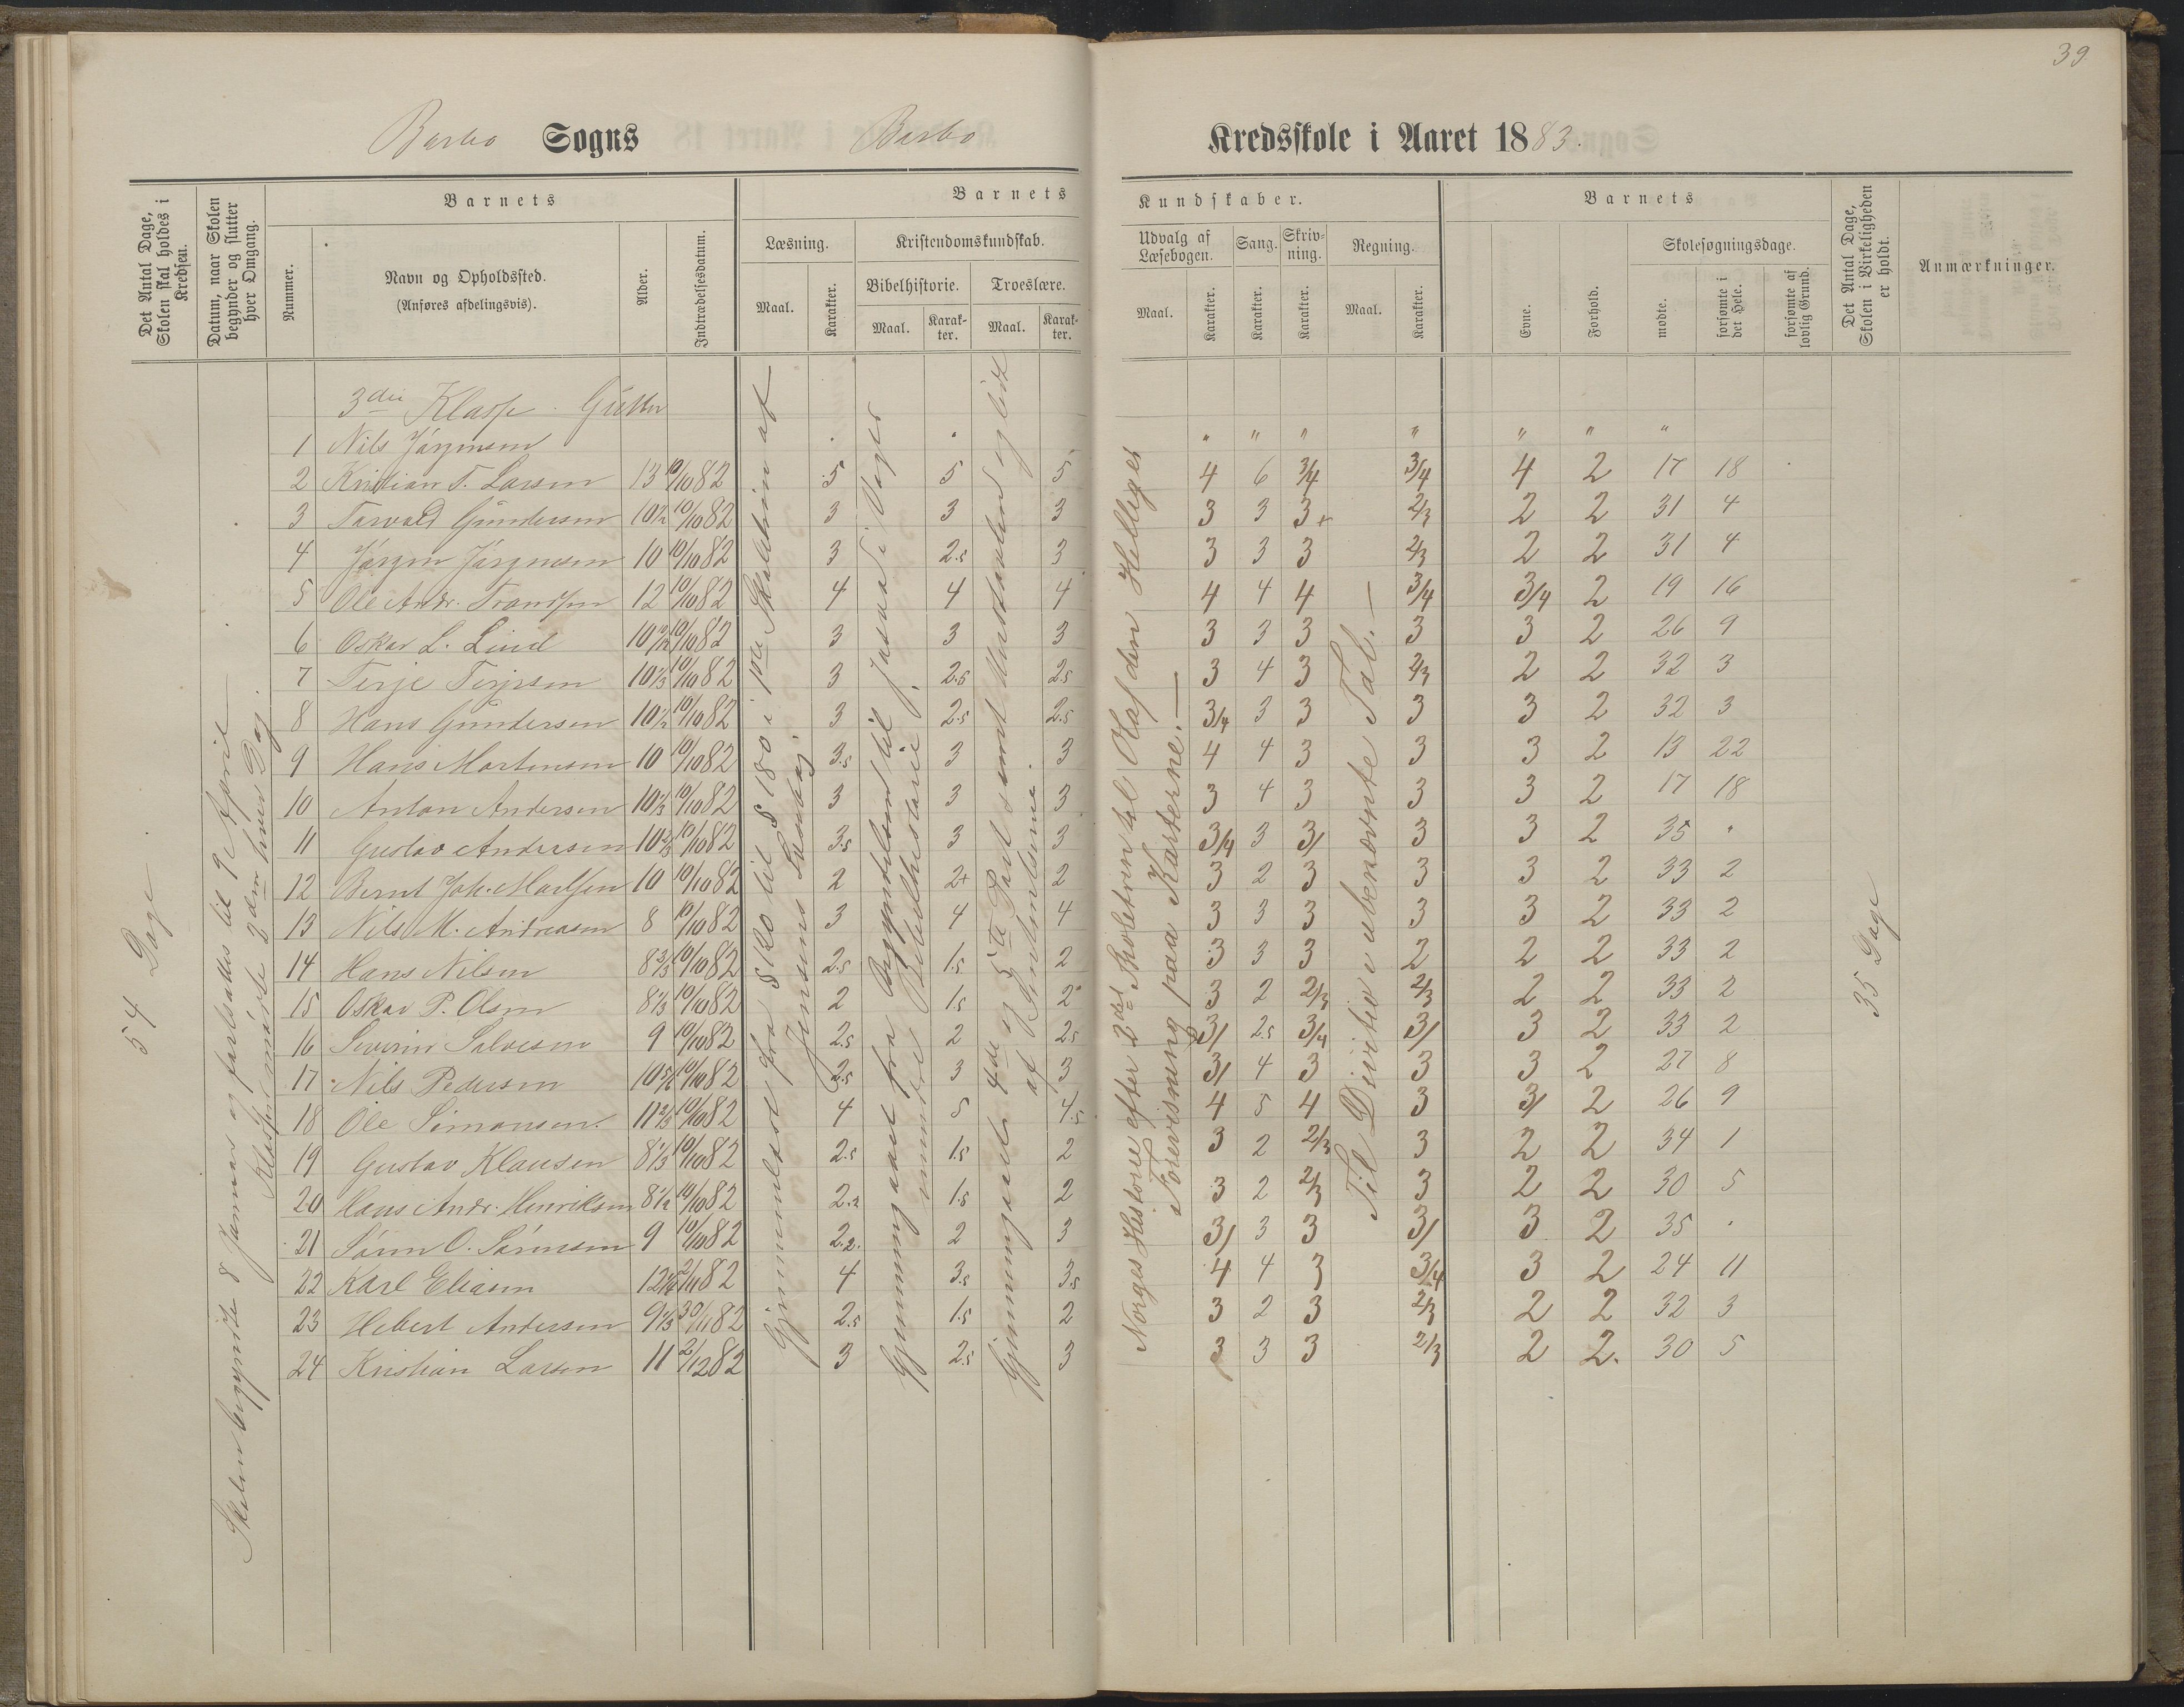 39
Barbo Sogns Barbo Kredsskole i Aaret 1883.
Det Antal Dage, Skolen skal holdes i Kredsen.
Datum, naar Skolen begynder og slutter hver Omgang.
Barnets
Nummer.
Navn og Opholdssted.
(Anføres afdelingsvis).
Alder.
Indtrædelsesdatum.
Barnets Kundskaber.
Læsning.
Maal.
Karakter.
Kristendomskundskab.
Bibelhistorie.
Maal.
Karakter.
Troeslære.
Maal.
Karakter.
Udvalg af Læsebogen.
Maal.
Karakter.
Sang.
Karakter.
Skrivning.
Karakter.
Regning.
Maal.
Karakter.
Barnets
Evne.
Forhold.
Skolesøgningsdage.
mødte.
forsømte i det Hele.
forsømte af lovlig Grund.
Det Antal Dage, Skolen i Virkeligheden er holdt.
Anmærkninger.
54 Dage
Skolen begyndte 8 Januar og fortsattes til 9 April
Klassen mødte 2den hver Dag.
3die Klasse. Gutter
1 Nils Jørgensen " " " " " " " "
2 Kristian T. Larsen 13 10/10 82 5 5 5 4 6 3/4 3/4 4 2 17 18
3 Torvald Gundersen 10 1/2 10/10 82 3 3 3 3 3 3+ 2/3 2 2 31 4
4 Jørgen Jørgensen 10 10/10 82 3 2.5 3 3 3 3 2/3 2 2 31 4
5 Ole Andr. 12 10/10 82 4 4 4 4 4 4 3/4 3/4 2 19 16
6 Oskar L. Lind 10/10 82 3 3 3 3 3 3 3 3 2 26 9
7 Terje Terjesen 10 1/3 10/10 82 3 2.5 2.5 3 4 3 2/3 2 2 32 3
8 Hans Gundersen 10 1/2 10/10 82 3 2.5 2.5 3/4 3 3 3 3 2 32 3
9 Hans Mortensen 10 10/10 82 3.5 3 3 4 4 3 3 3 2 13 22
10 Anton Andersen 10 1/3 10/10 82 3 3 3 3 4 3 3 3 2 17 18
11 Gustav Andersen 10 2/3 10/10 82 3.5 3 3 3/4 3 3/ 3 3 2 35 "
12 Bernt Joh. 10 10/10 82 2 2+ 2 3 2 3 3 3 2 33 2
13 Nils M. Andreasen 8 10/10 82 3 4 4 3 3 3 3 3 2 33 2
14 Hans Nilsen 8 2/3 10/10 82 2.5 1.5 2 3 3 3 2 2 2 33 2
15 Oskar P. Olsen 8 1/3 10/10 82 2 1.5 2 3 2 2/3 2/3 2 2 33 2
16 Severin Salvesen 9 10/10 82 2.5 2 2.5 3/ 2.5 3/4 3/ 3 2 33 2
17 Nils Pedersen 10 5/6 10/10 82 2.5 3 3 3/ 4 3 3 3 2 27 8
18 Ole Simonsen. 11 2/3 10/10 82 4 5 4.5 4 5 4 3 3/ 2 26 9
19 Gustav Klausen 8 1/3 10/10 82 2.5 1.5 2 3 2 2/3 3 2 2 34 1
20 Hans Andr. Henriksen 8 1/2 10/10 82 2.2 1.5 2 3 2 2/3 3 2 2 30 5
21 Søren O. Sørensen 9 10/10 82 2.2. 2 3 3/ 3 3 3/ 3 2 35 "
22 Karl Eliasen 2/11 82 4 3.5 3.5 4 4 3 3/4 3 2 24 11
23 Hebert Andersen 9 1/3 30/11 82 2.5 1.5 2 3 2 3 2/3 2 2 32 3
24 Kristian Larsen 11 2/12 82 3 2.5 3 3 3 3 2/3 2 2. 30 5
Gjennemlæst fra § 120 til § 180 i 1ste Skoletrin af
Jensens Læsebog.
Gjennemgaaet fra Begyndelsen til Josva i Vogts
mindre Bibelhistorie.
Gjennemgaaet 4de og 5te Part samt Underdaaben og lidt
af Indledningen.
Norges Historie efter 2det Skoletrin til Olaf den Hellige
Forevisning paa Karterne.
Til Division i ubenævnte Tal.
35 Dage